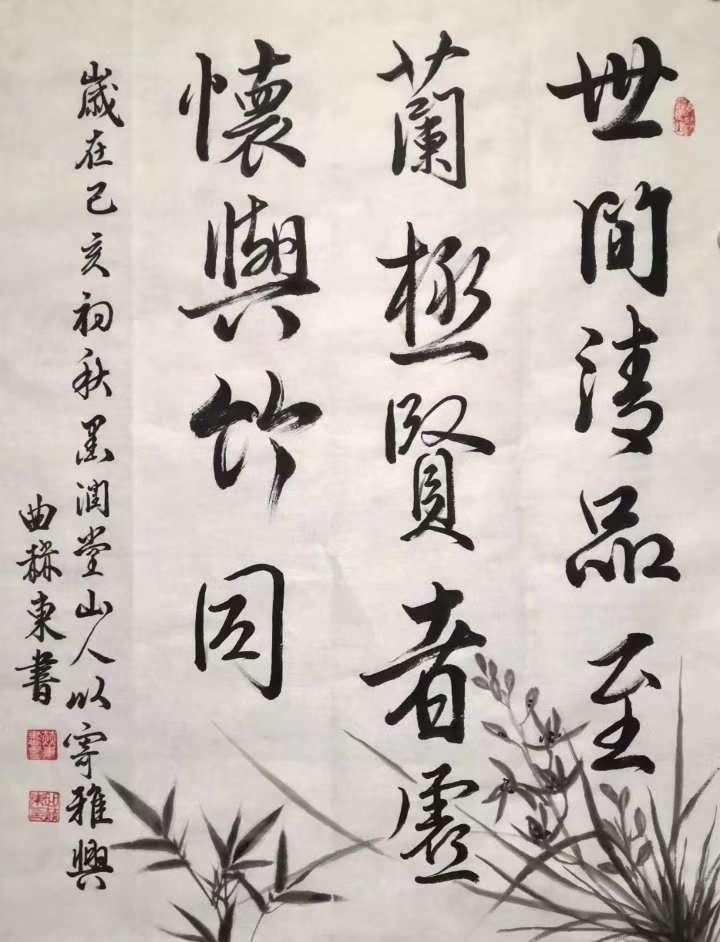 世間清品至
蘭極賢者虛
懷與竹同
歲在己亥初秋墨潤堂山人以寄雅興
曲東書